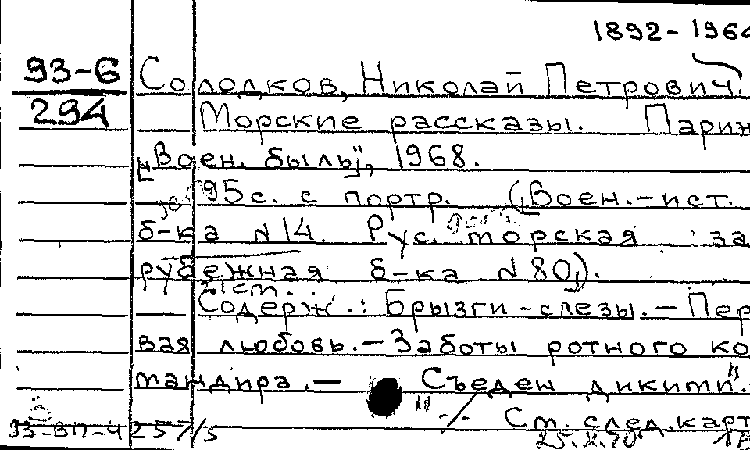 1892-1964
93-6
294
Солодков, Николай Петрович.
Морские рассказы. Париж
„Воен. быль", 1968.
95 с. с портр. (Воен.-ист.
б-ка N 14. Рус. морская за
рубежная б-ка N 80).
Содерж.: Брызги-слезы.- Пер
вая любовь.- Заботы ротного ко
мандира.- „Съеден дикими".
-/- См. след. карт